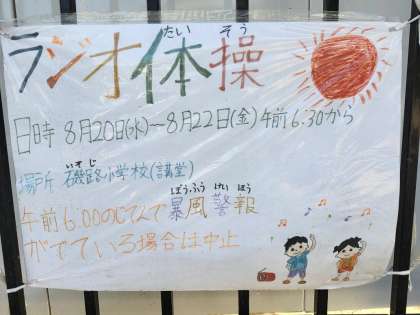 たいそう
ラジオ体操
日時 8月20日(水)~8月22日(金) 午前6.30から
いそじ
場所 磯路小学校(講堂)
ぼうふう けいほう
午前6:00の時点で暴風警報
がでている場合は中止